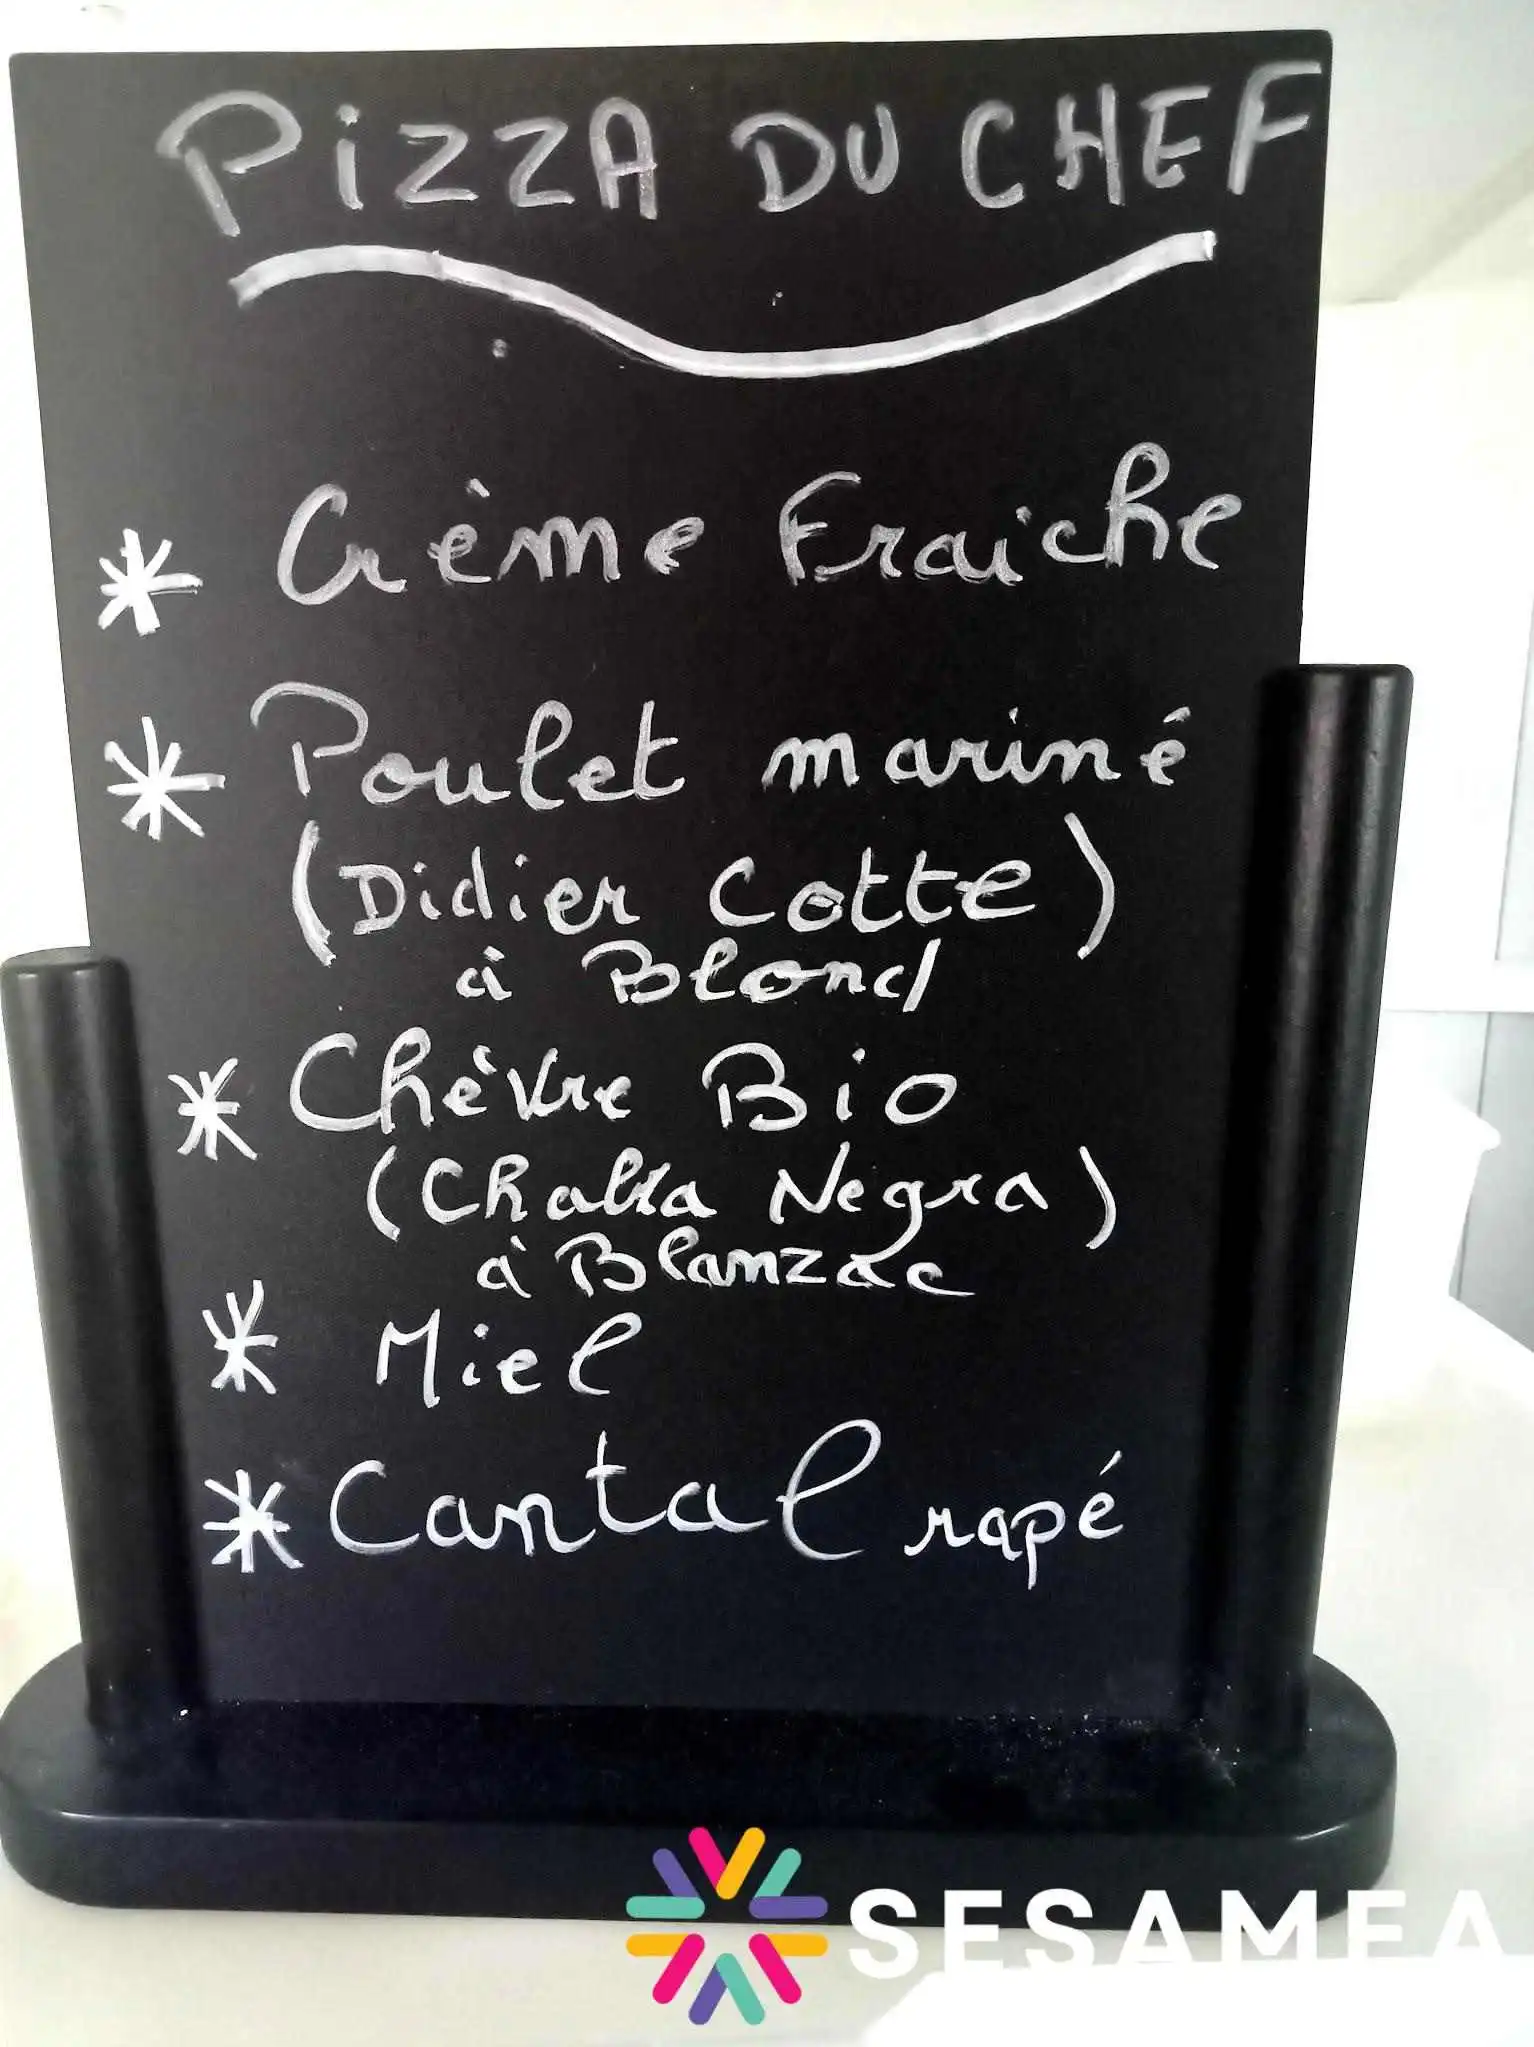 PiZZA DU CHEF
* Crème Fraiche
* Poulet mariné
(Didier Cotte)
à Blond
* Chèvre Bio
(Chabra Negra)
à Blanzac
* Miel
* Cantal rapé
SESAMEA